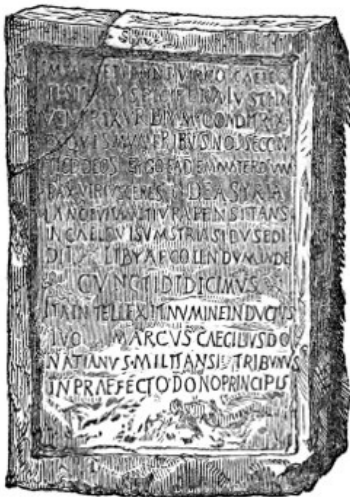 VIRGO CAELES
VENTRIX VRBIVM CONDITRIX
EX QVIS MVN RIBVS NOSSECON
DEOS ERGO EADEMMATERDIVVM
PAX VIRTVS CERES DEA SYRIA
LANCEVITAM ETIVRA PENSITANS
IN CAELOVISVM SYRIASIDVSEDI
DIT LIBYAE COLENDVMINDE
CVNCTI DIDICIMVS
ITA INTELLEXIT NVMINE INDVCTVS
TVO MARCVS CAECILIVS DO
NATIANVS MILITANS TRIBVNVS
IN PRAEFECTO DONO PRINCIPIS